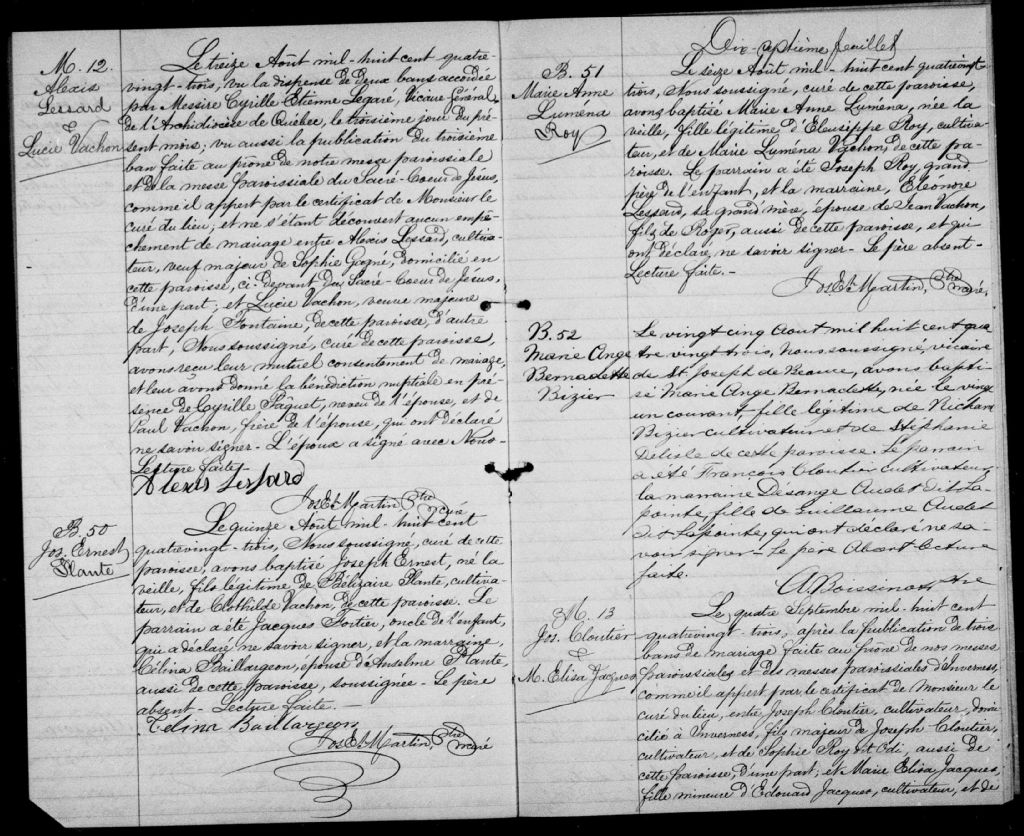 M. 12.
Alexis
Lessard
&
Lucie Vachon
Le treize Août mil-huit cent quatre-
vingt-trois, vu la dispense de deux bans accordée
par Messire Cyrille Etienne Legaré, Vicaire Général
de l'Archidiocèse de Québec, le troisième jour du pré-
sent mois; vu aussi la publication du troisième
ban faite au prone de notre messe paroissiale
et de la messe paroissiale du Sacré-Coeur de Jésus,
comme il appert par le certificat de Monsieur le
curé du lieu; et ne s'étant découvert aucun empê-
chement de mariage entre Alexis Lessard, cultiva-
teur, veuf majeur de Sophie Gagné, domicilié en
cette paroisse, ci-devant du Sacré-Coeur de Jésus,
d'une part; et Lucie Vachon, veuve majeure
de Joseph Fontaine, de cette paroisse, d'autre
part, Nous soussigné, curé de cette paroisse,
avons reçu leur mutuel consentement de mariage,
et leur avons donné la bénédiction nuptiale en pré-
sence de Cyrille Pâquet, neveu de l'épouse, et de
Paul Vachon, frère de l'épouse, qui ont déclaré
ne savoir signer- L'époux a signé avec Nous-
Lecture faite
Alexis Lessard
Jos Et Martin Ptre
curé
B. 50
Jos. Ernest
Plante
Le quinze Août mil-huit cent
quatrevingt-trois, Nous soussigné, curé de cette
paroisse, avons baptisé Joseph Ernest, né la
veille, fils légitime de Bélizaire Plante, cultiva-
teur, et de Clothilde Vachon, de cette paroisse. Le
parrain a été Jacques Fortier, oncle de l'enfant,
qui a déclaré ne savoir signer, et la marraine,
Célina Baillargeon, épouse d'Anselme Plante,
aussi de cette paroisse, soussignée- Le père
absent- Lecture faite-
Célina Baillargeon
Jos Et Martin, Ptre
curé
Dix-septième feuillet
B. 51
Marie Anne
Luména
Roy
Le seize Août mil-huit cent quatrevingt-
trois, Nous soussigné, curé de cette paroisse,
avons baptisé Marie Anne Luména, née la
veille, fille légitime d'Eleusippe Roy, cultiva-
teur, et de Marie Luména Vachon, de cette pa-
roisse. Le parrain a été Joseph Roy, grand
père de l'enfant, et la marraine, Eléonore
Lessard, sa grand'mère, épouse de Jean Vachon,
fils de Roger, aussi de cette paroisse, et qui
ont déclaré ne savoir signer- Le père absent-
Lecture faite.-
Jos Et Martin, Ptre
curé.
B. 52
Marie Ange
Bernadette
Bizier
Le vingt cinq Aout mil huit cent qua
tre vingt trois, nous soussigné, vicaire
de St Joseph de Beauce, avons bapti-
sé Marie Ange Bernadette, née le vingt
un courant, fille légitime de Richard
Bizier cultivateur et de Stéphanie
Délisle de cette paroisse. Le parrain
a été François Cloutier cultivateur,
la marraine Désange Audet dit La-
pointe, fille de Guillaume Audet
dit Lapointe, qui ont déclaré ne sa-
voir signer- Le père Absent Lecture
faite.
A. Boissinot Ptre
M. 13
Jos. Cloutier
&
M. Elisa Jacques
Le quatre Septembre mil-huit cent
quatrevingt-trois, après la publication de trois
bans de mariage faite au prône de nos messes
paroissiales et des messes paroissiales d'Inverness,
comme il appert par le certificat de Monsieur le
curé du lieu, entre Joseph Cloutier, cultivateur, domi
cilié à Inverness, fils majeur de Joseph Cloutier,
cultivateur, et de Sophie Roy, aussi de
cette paroisse, d'une part; et Marie Elisa Jacques,
fille mineure d'Edouard Jacques, cultivateur, et de